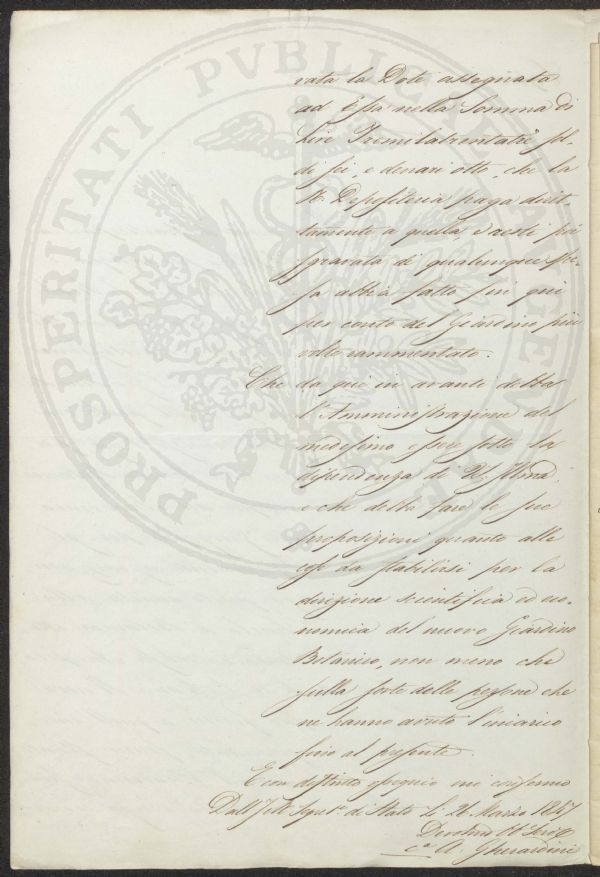 vata la Dote assegnata
ad Essa nella Somma di
Lire Tremilatrentatrè sol-
di sei, e denari otto, che la
R. Depositeria paga diret-
tamente a quella, e resti poi
sgravata di qualunque spe-
sa abbia fatto fin qui
per conto del Giardino più
volte rammentato.
Che da qui in avanti debba
l'Amministrazione del
medesimo essere sotto la
dipendenza di
e che debba fare le sue
proposizioni quanto alle
cose da stabilirsi per la
direzione scientifica ed eco-
nomica del nuovo Giardino
Botanico, non meno che
sulla sorte delle persone che
ne hanno avuto l'incarico
fino al presente.
E con distinto ossequio mi confermo
di Stato Li Marzo
A. Gherardini
PROSPERITATI PUBLICAE AUGENDAE